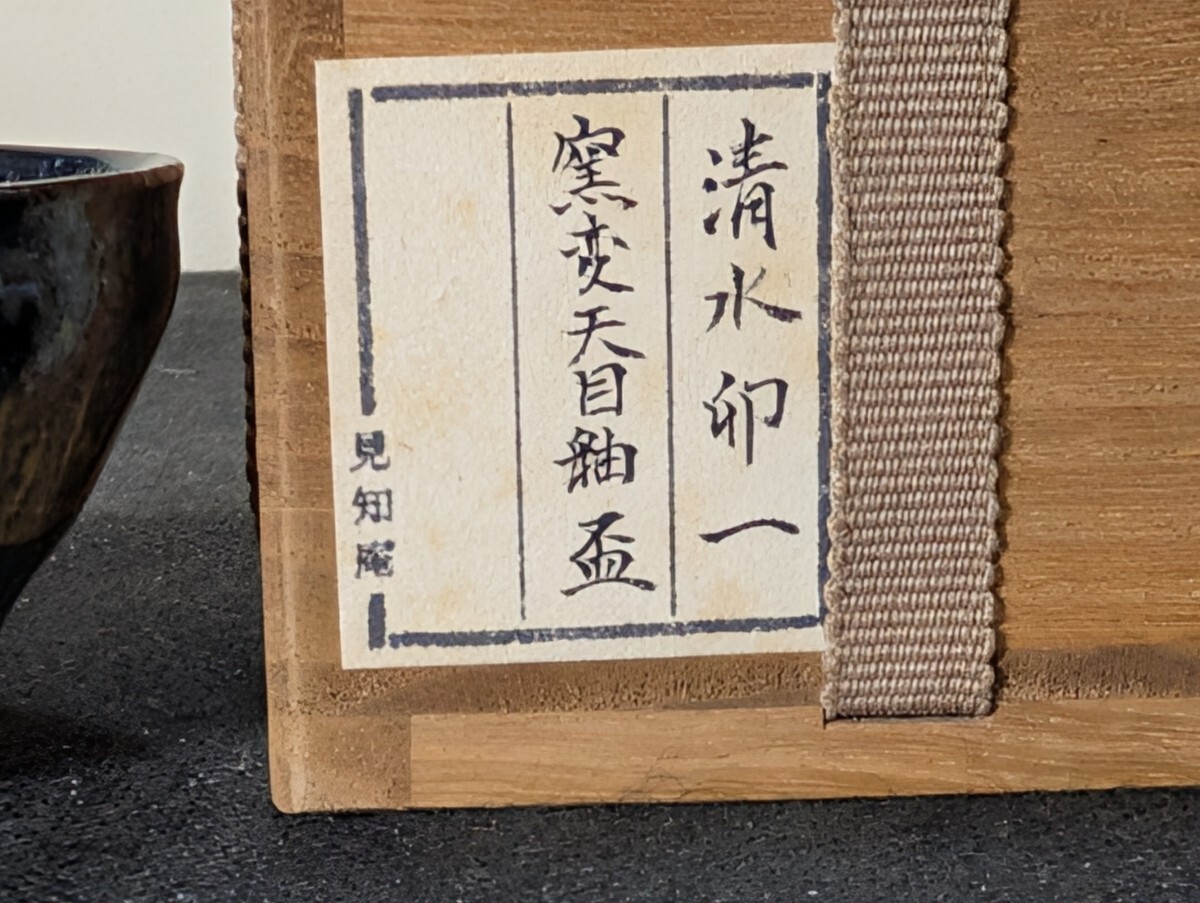 清水卯一
窯変天目釉盃
見知庵